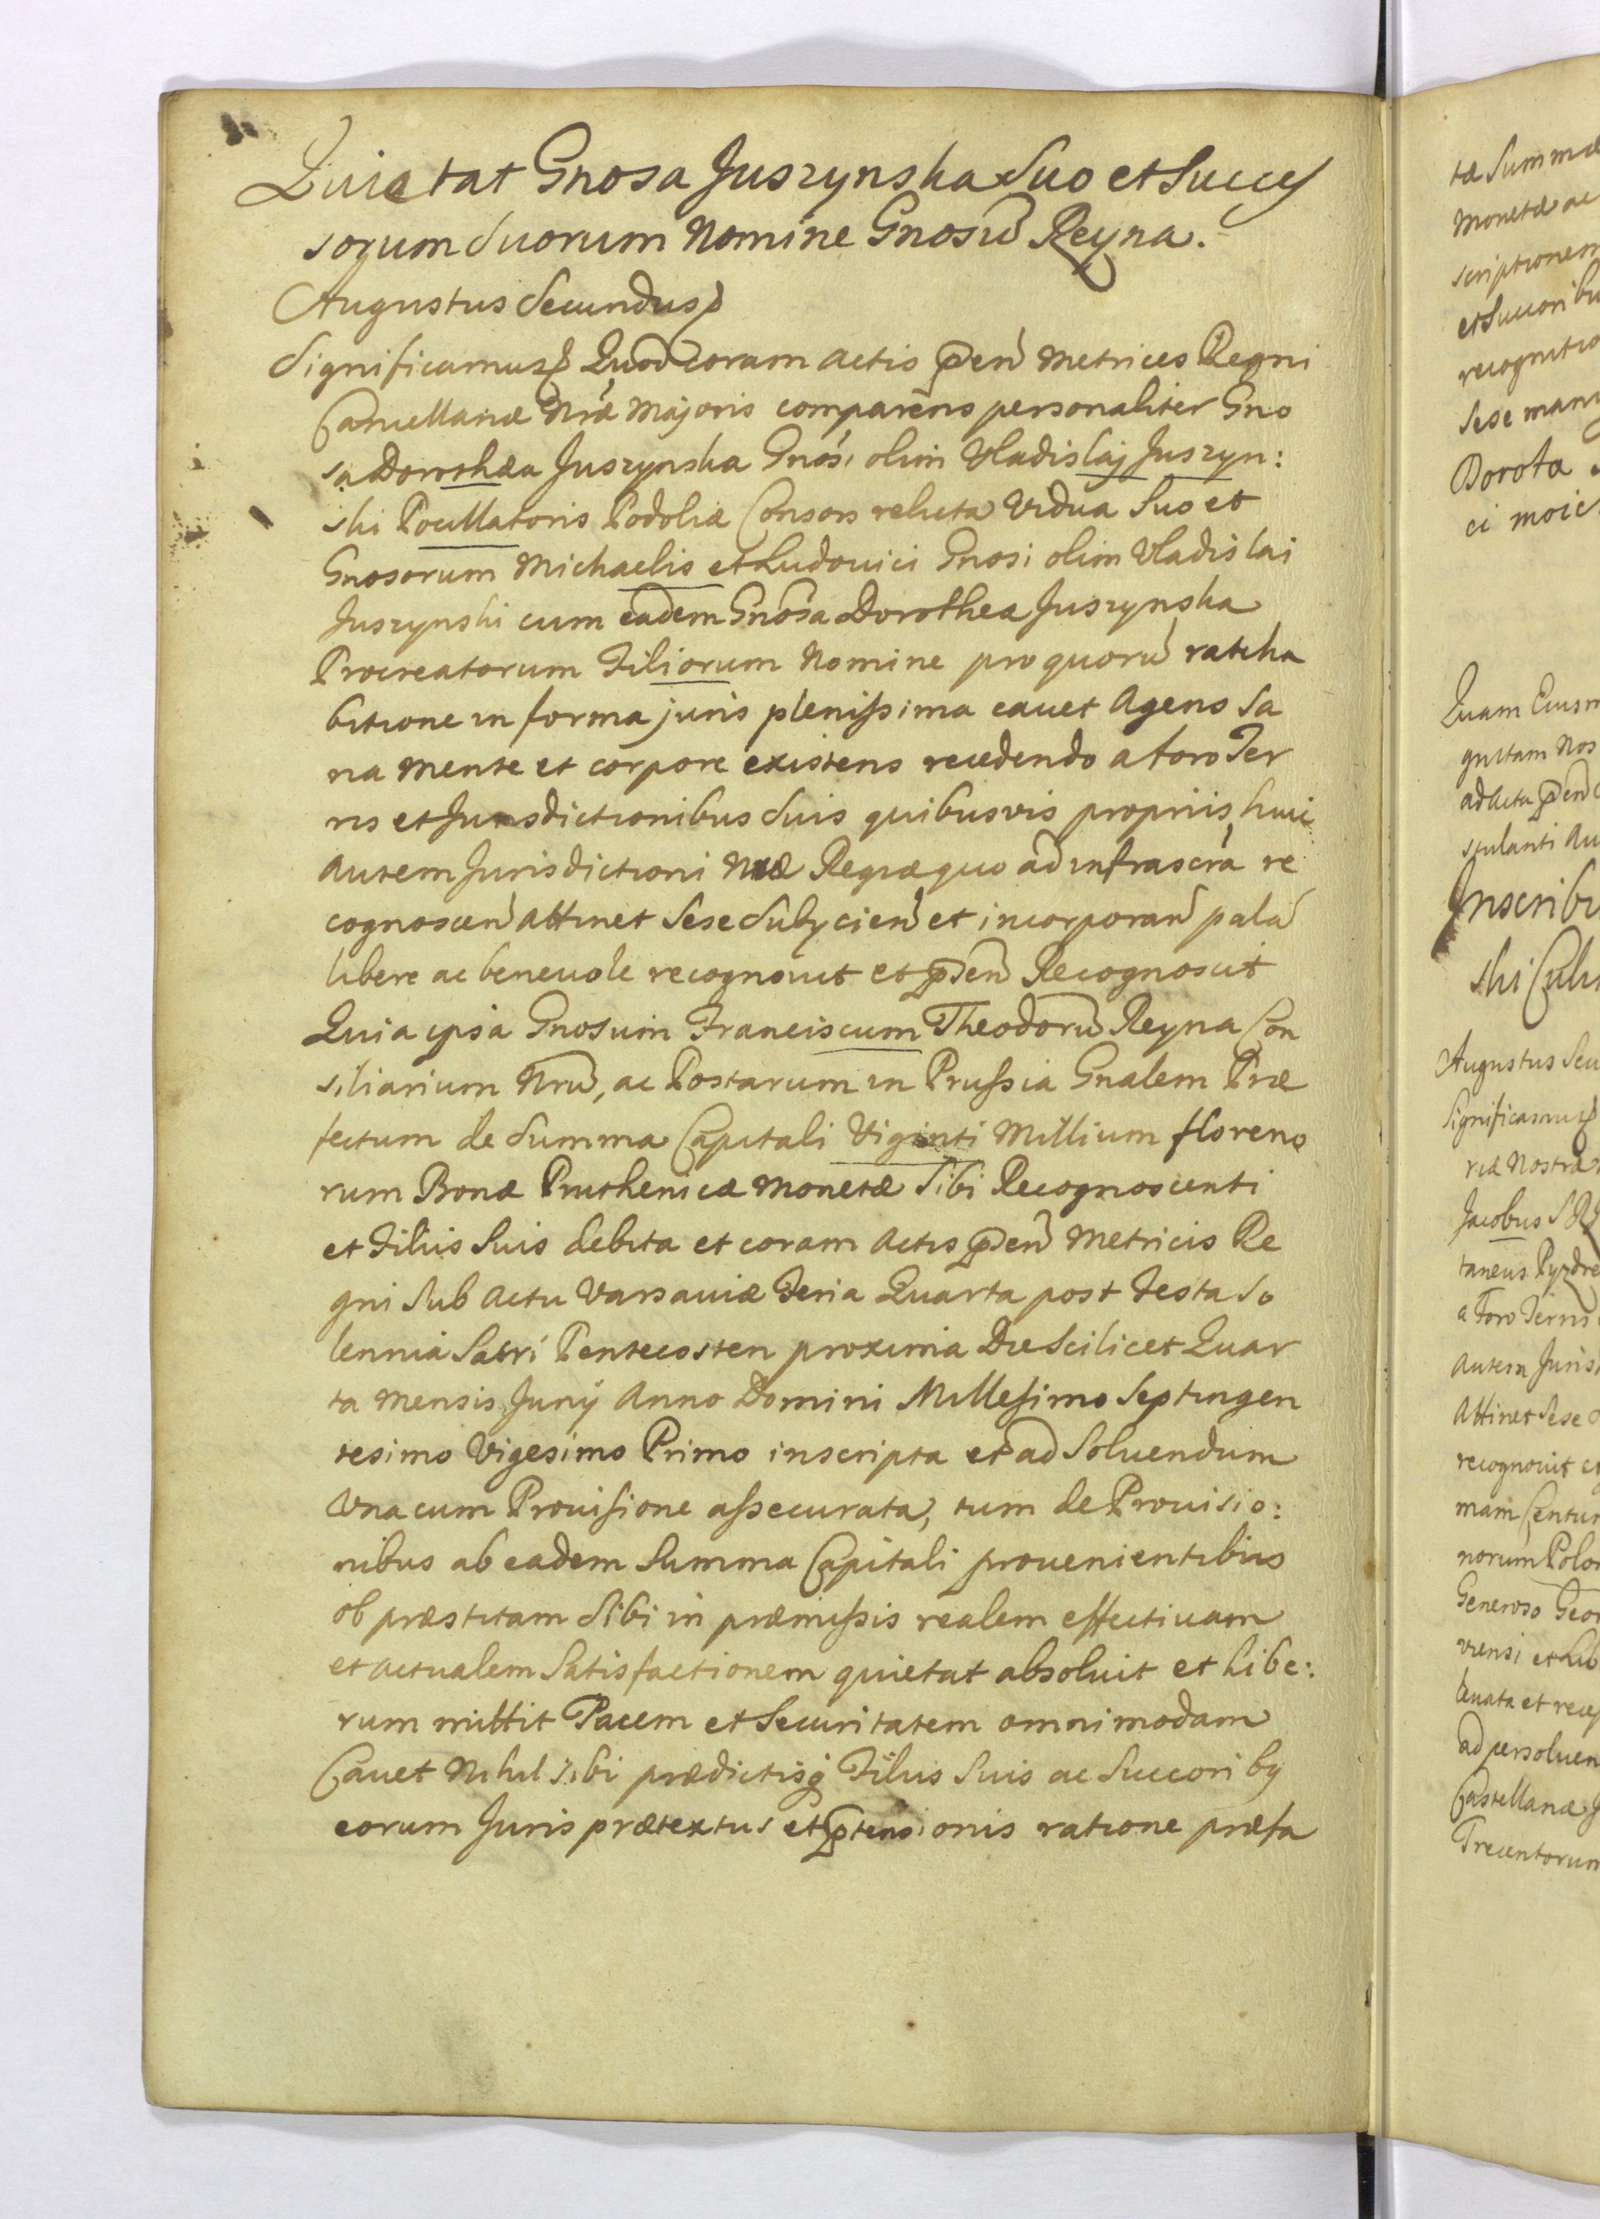 Quietat Gnosa Juszynska Suo et Succes
sorum Suorum Nomine Gnosũ Reyna.
Augustus Secundus
Significamus Quod coram Actis p̃ñ Metrices Regni
Cancellariæ Nrã Majoris comparens personaliter Gno
sa Dorothæa Juszynska Gnosi olim Vladislaj Juszyn:
ski Pocillatoris Podoliæ Consors relicta Vidua Suo et
Gnosorum Michaelis et Ludovici Gnosi olim Vladislai
Juszynski cum eadem Gnosa Dorothea Juszynska
Procreatorum Filiorum Nomine pro quorũ ratiha
bitione in forma juris plenissima cavet Agens Sa
na Mente et corpore existens recedendo a foro Ter
ris et Jurisdictionibus Suis quibusvis propriis, huic
autem Jurisdictioni Nræ Regiæ quo ad infrascra re
cognoscen attinet Sese Subjicien et incorporan palã
libere ac benevole recognovit et p̃ñ Recognoscit
Quia ipsa Gnosum Franciscum Theodorũ Reyna Con
siliarium Nrũ, ac Postarum in Prussia Gnalem Præ
fectum de Summa Capitali Viginti Millium floreno
rum Bonæ Pruthenicæ Monetæ Sibi Recognoscenti
et Filiis Suis debita et coram Actis p̃ñ Metricis Re
gni Sub Actu Varsaviæ Feria Quarta post Festa So
lennia Sacri Pentecosten proxima Die Scilicet Quar
ta Mensis Junij Anno Domini Millesimo Septingen
tesimo Vigesimo Primo inscripta et ad Solvendum
Una cum Provisione assecurata, tum de Provisio:
nibus ab eadem Summa Capitali provenientibus
ob præstitam Sibi in præmissis realem effectivam
et actualem Satisfactionem quietat absolvit et libe:
rum mittit Pacem et Securitatem omnimodam
Cavet Nihil Sibi prædictisq Filiis Suis ac Succoribq
eorum Juris prætextus et ptensionis ratione præfa
tæ Summæ
Monetæ ac
scriptionem
et Succoribu
recognitio
Sese man
Dorota
ci moie
Quam Eiusm
gnitam Nos
ad Acta p̃ñ
stulanti Au
Inscrib
ski
Augustus Secu
Significamus
riæ Nostræ
Jacobus
taneus Pyzdre
a Foro Terris
autem Juris
Attinet Sese
recognovit et
mam Centu
norum Polo
Generoso Geor
viensi et
levata et rece
ad persolven
Castellanæ
Trecentorum